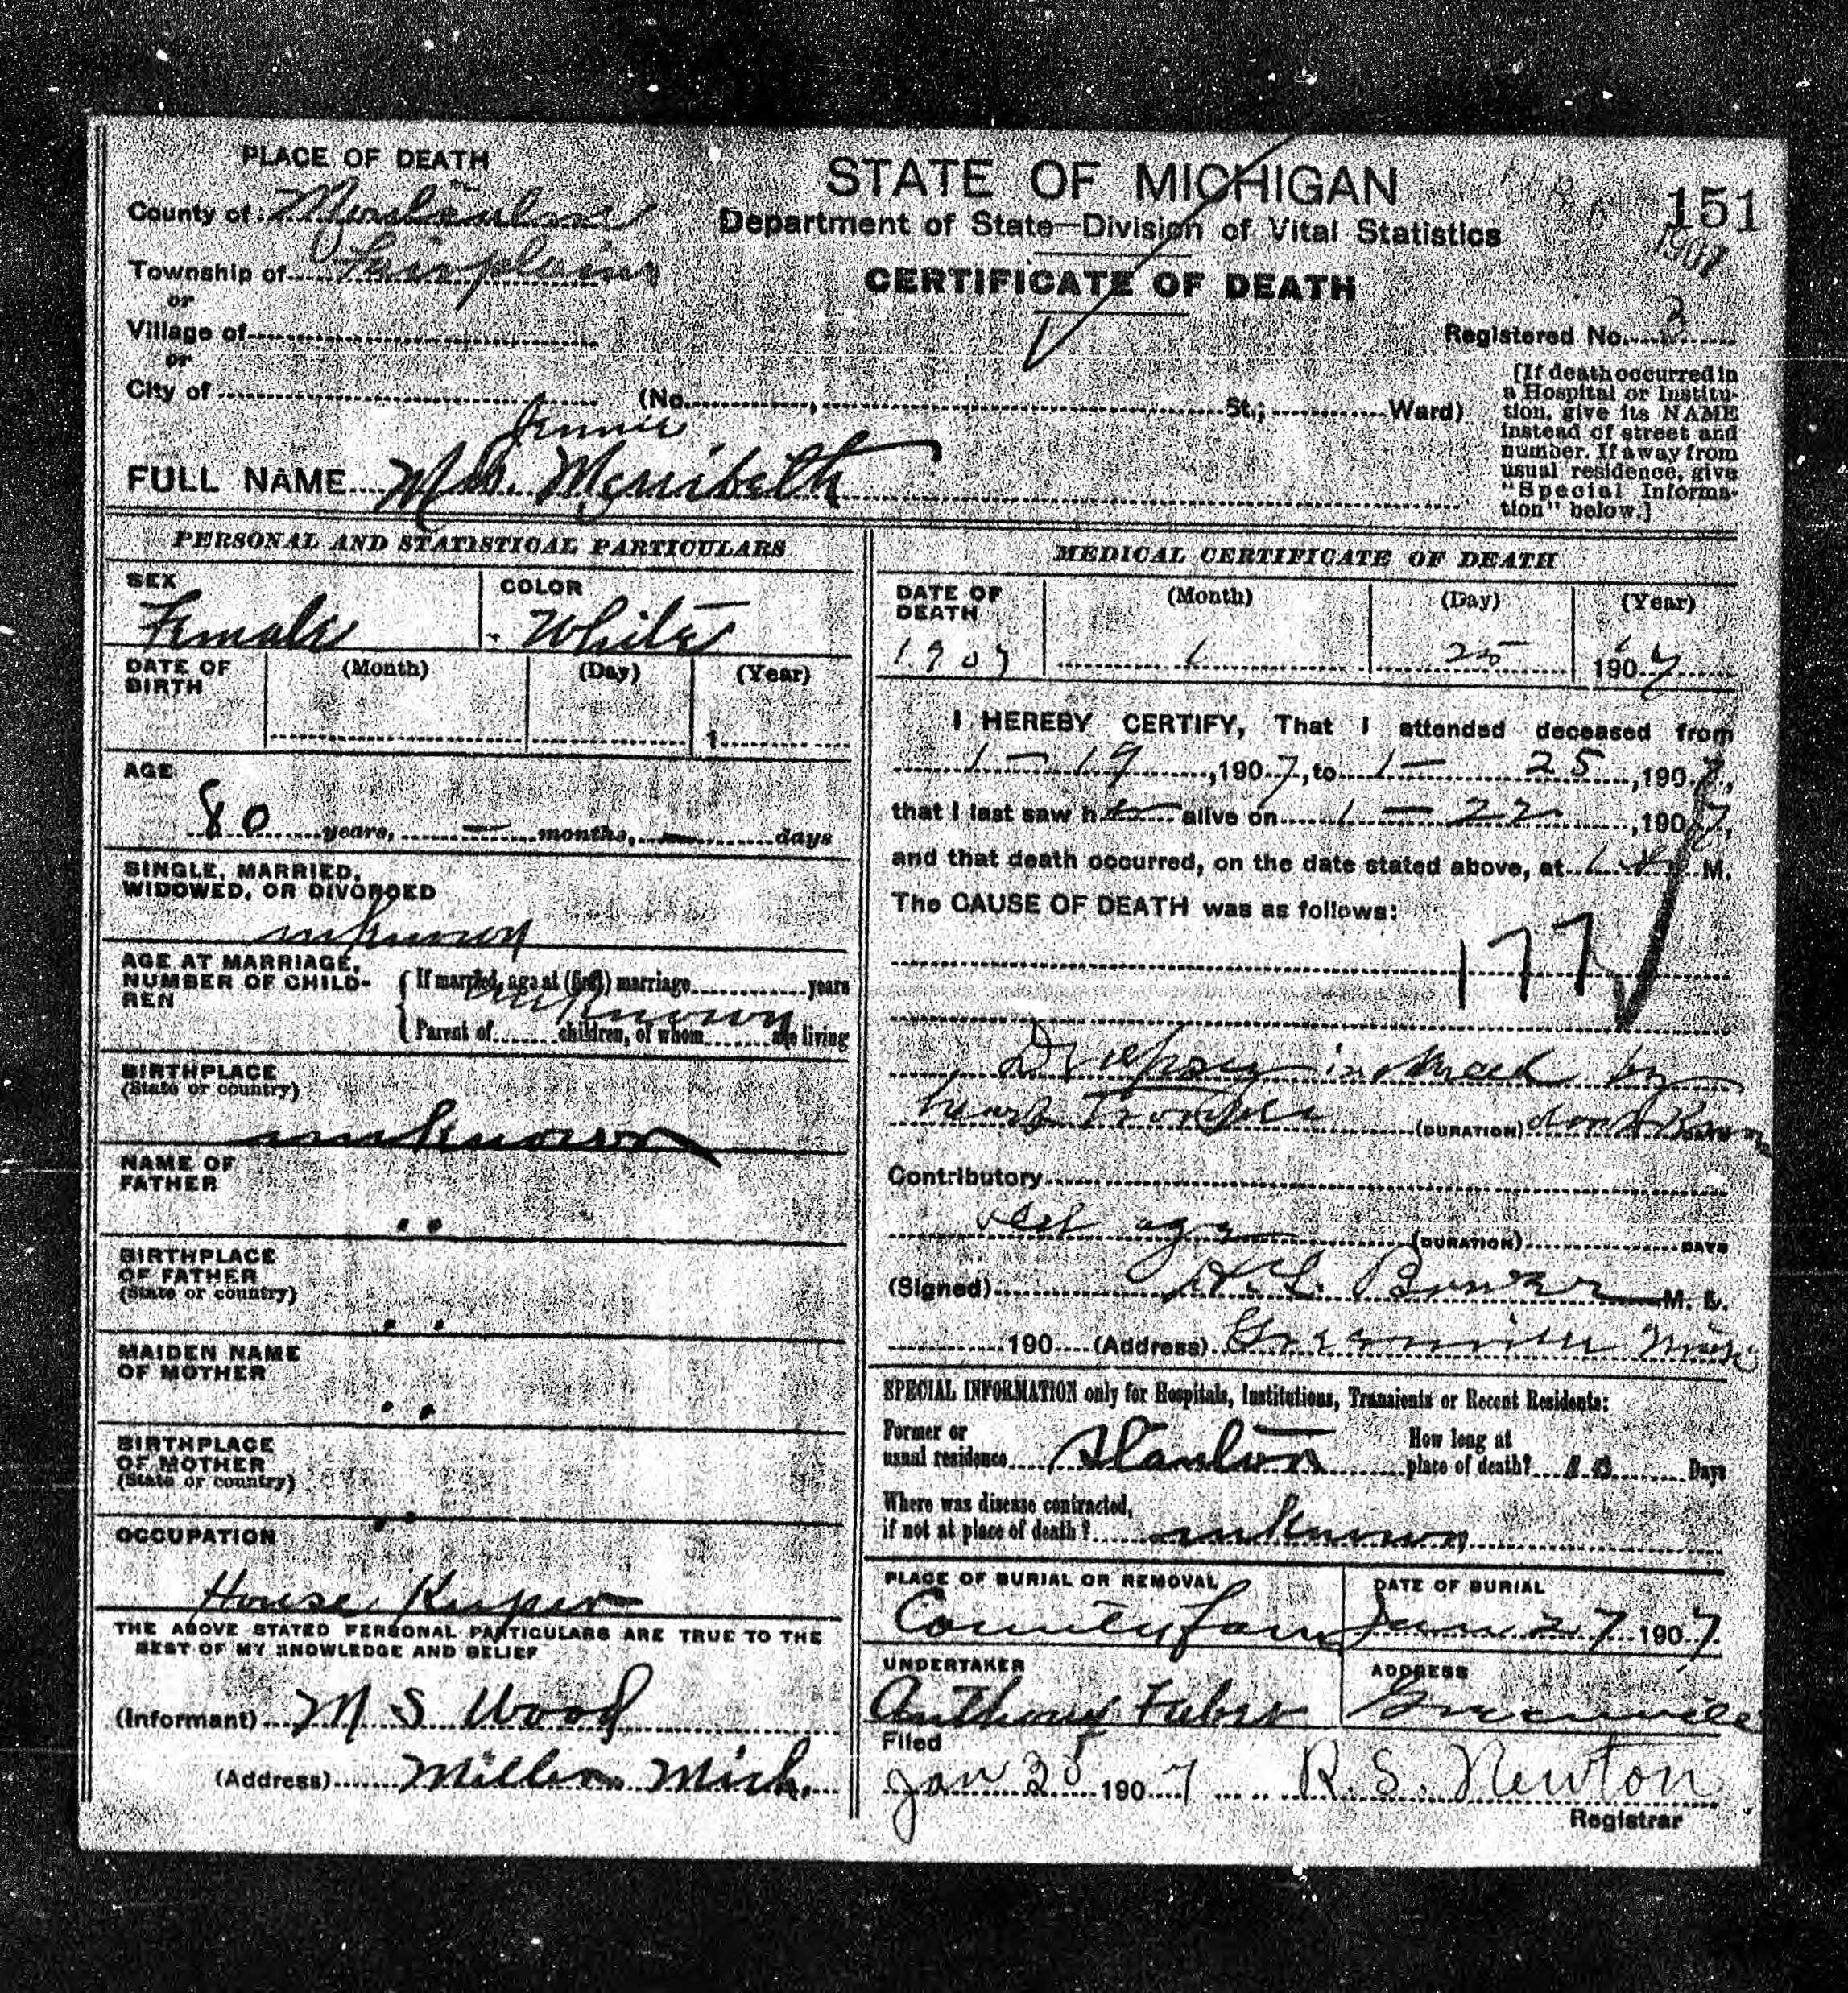 PLACE OF DEATH
County of Montcalm
Township of Fairplain
or
Village of
or
City of
STATE OF MICHIGAN
Department of State—Division of Vital Statistics
CERTIFICATE OF DEATH
151
1907
Registered No. 3
(No. , St.; Ward)
[If death occurred in
a Hospital or Institu-
tion, give its NAME
instead of street and
number. If away from
usual residence, give
"Special Informa-
tion" below.]
Jennie
FULL NAME Mrs.
PERSONAL AND STATISTICAL PARTICULARS
SEX
Female
COLOR
White
DATE OF
BIRTH
(Month) (Day) (Year)
1
AGE
80 years, — months, — days
SINGLE, MARRIED,
WIDOWED, OR DIVORCED
unknown
AGE AT MARRIAGE,
NUMBER OF CHILD-
REN
If married, age at (first) marriage years
unknown
Parent of children, of whom are living
BIRTHPLACE
(State or country)
unknown
NAME OF
FATHER
" "
BIRTHPLACE
OF FATHER
(State or country)
" "
MAIDEN NAME
OF MOTHER
" "
BIRTHPLACE
OF MOTHER
(State or country)
" "
OCCUPATION
House Keeper
THE ABOVE STATED PERSONAL PARTICULARS ARE TRUE TO THE
BEST OF MY KNOWLEDGE AND BELIEF
(Informant) M S Wood
(Address) Mich.
MEDICAL CERTIFICATE OF DEATH
DATE OF
DEATH
(Month) (Day) (Year)
1907 1 25 1907
I HEREBY CERTIFY, That I attended deceased from
1 — 19, 1907, to 1 — 25, 1907,
that I last saw h alive on 1 — 22, 1907,
and that death occurred, on the date stated above, at M.
The CAUSE OF DEATH was as follows:
177
Dropsy induced by
heart trouble (DURATION) dont know DAYS
Contributory
old age (DURATION) DAYS
(Signed) H. L. Bower M. D.
190 (Address) Greenville Mich
SPECIAL INFORMATION only for Hospitals, Institutions, Transients or Recent Residents:
Former or
usual residence Stanton
How long at
place of death? 10 Days
Where was disease contracted,
if not at place of death? unknown
PLACE OF BURIAL OR REMOVAL
County farm
DATE OF BURIAL
Jan 27 1907
UNDERTAKER
Anthony Faber
ADDRESS
Greenville
Filed
Jan 28 1907 R. S. Newton
Registrar